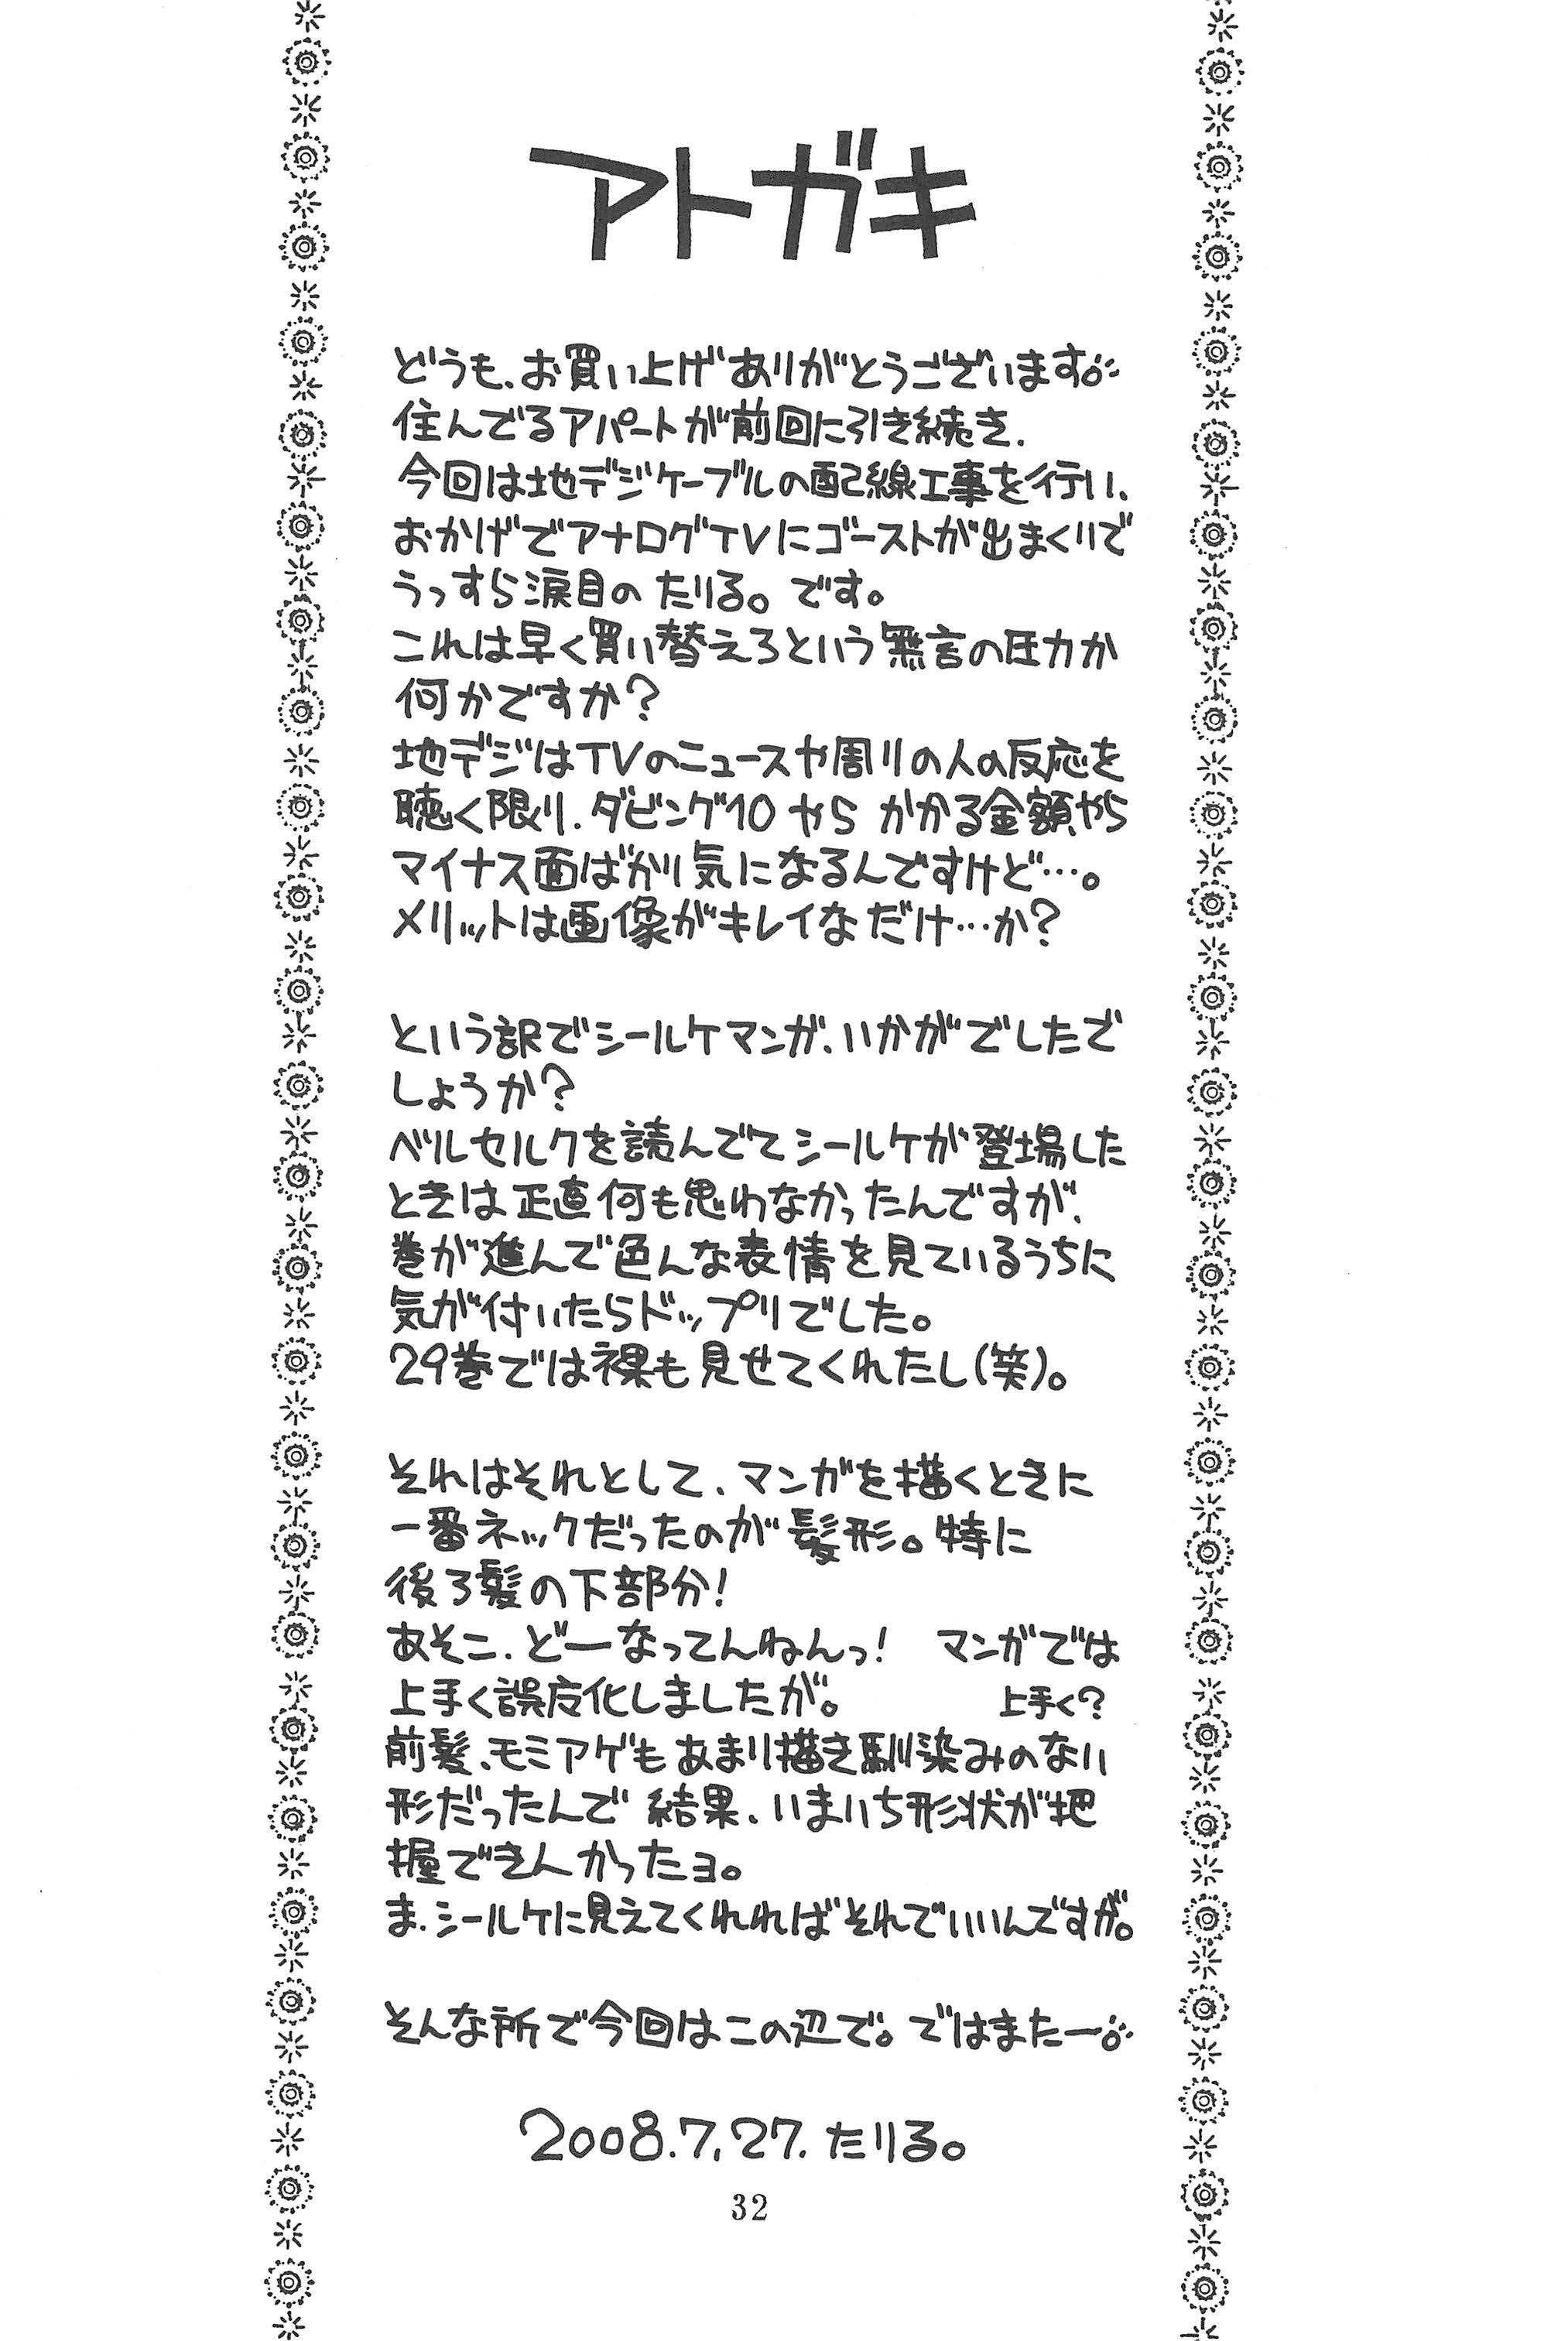 アトガキ
どうも、お買い上げありがとうございます。
住んでるアパートが前回に引き続き、
今回は地デジケーブルの配線工事を行い、
おかげでアナログTVにゴーストが出まくりで
うっすら涙目の たりる。です。
これは早く買い替えろという無言の圧力か
何かですか?
地デジはTVのニュースや周りの人の反応を
聴く限り、ダビング10やら かかる金額やら
マイナス面ばかり気になるんですけど…。
メリットは画像がキレイなだけ…か?
という訳でシールケマンガ、いかがでしたで
しょうか?
ベルセルクを読んでてシールケが登場した
ときは正直何も思わなかったんですが、
巻が進んで色んな表情を見ているうちに
気が付いたらドップリでした。
29巻では裸も見せてくれたし(笑)。
それはそれとして、マンガを描くときに
一番ネックだったのが髪形。特に
後ろ髪の下部分!
あそこ、どーなってんねんっ! マンガでは
上手く誤広化しましたが。 上手く?
前髪、モミアゲもあまり描き馴染みのない
形だったんで 結果、いまいち形状が把
握できんかったョ。
ま、シールケに見えてくれればそれでいいんですが。
そんな所で今回はこの辺で。ではまたー。
2008.7.27. たりる。
32